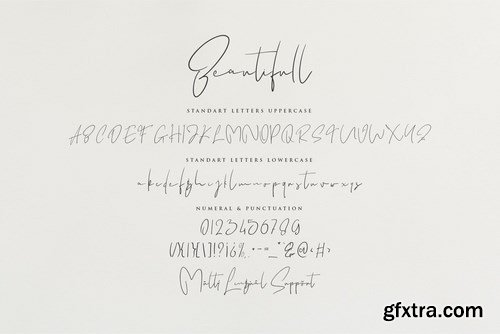 Beautifull
STANDART LETTERS UPPERCASE
ABCDEFGHIJKLMNOPQRSTUVWXYZ
STANDART LETTERS LOWERCASE
abcdefghijklmnopqrstuvwxyz
NUMERAL & PUNCTUATION
0123456789
Multi Lingual Support
gfxtra.com